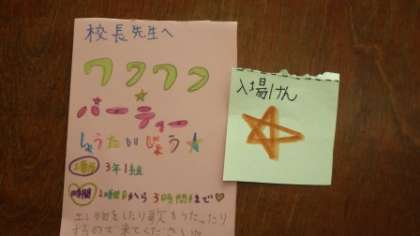 校長先生へ
ワワワワ
パーティー
しょうたいじょう
場所 3年1組
時間 2時間目から3時間まで♡
出し物をしたり歌をうたったり
するので来てくださいね
入場けん